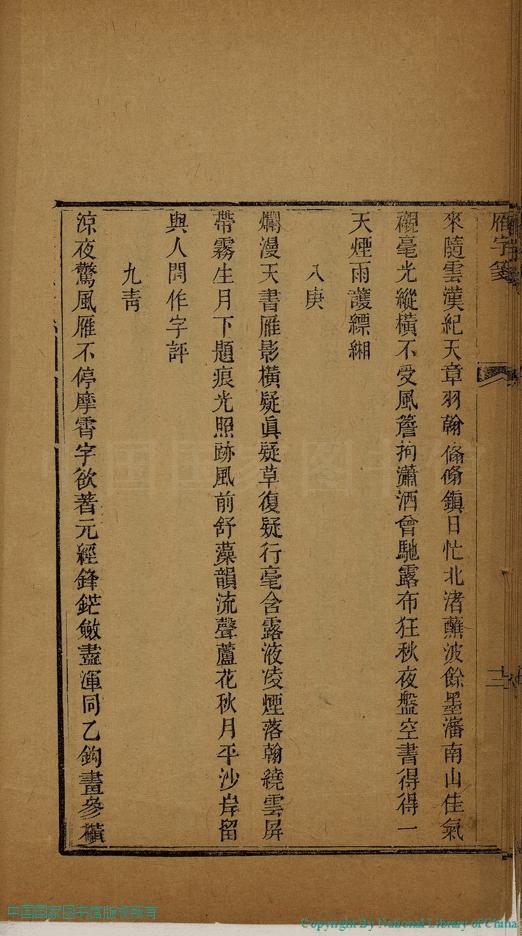 雁字箋
十二
來隨雲漢紀天章羽翰翛翛鎮日忙北渚蘸波餘墨瀋南山佳氣
襯毫光縱橫不受風簷拘瀟洒曾馳露布狂秋夜盤空書得得一
天煙雨護縹緗
八庚
爛漫天書雁影橫疑真疑草復疑行毫含露液凌煙落翰繞雲屏
帶霧生月下題痕光照跡風前舒藻韻流聲蘆花秋月平沙岸留
與人間作字評
九靑
涼夜驚風雁不停摩霄字欲著元經鋒鋩斂盡渾同乙鈎畫參橫
中国国家图书馆版权所有
Copyright By National Library of China